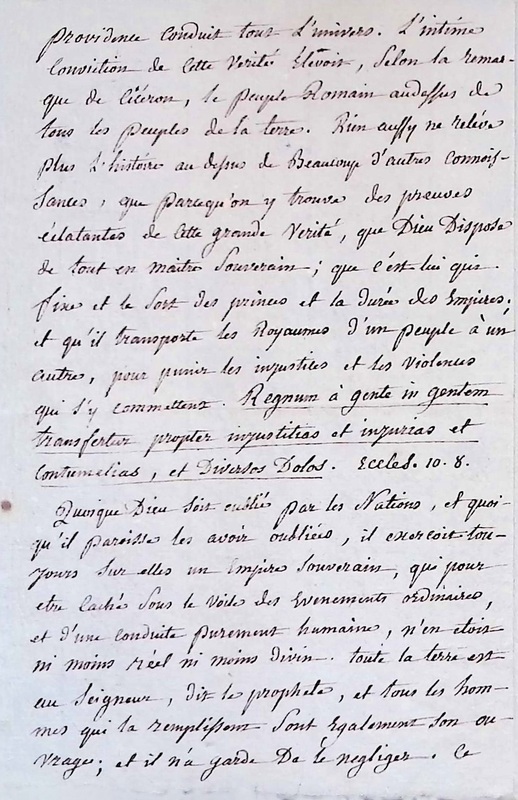 Providence conduit tout L'univers. L'intime
Conviction de Cette Verité Elevoit, Selon la remar-
que de Ciceron, le peuple Romain audessus de
tous les peuples de la terre. Rien aussy ne reléve
plus L'histoire au dessus de Beaucoup d'autres connois-
sances, que parcequ'on y trouve des preuves
éclatantes de Cette grande Verité, que Dieu Dispose
de tout en maitre Souverain; que c'est lui qui
fixe et le Sort des princes et la durée des Empires;
et qu'il transporte les Royaumes d'un peuple à un
autre, pour punir les injustices et les Violences
qui s'y commettent. Regnum à gente in gentem
transfertur propter injustitias et injurias et
Contumelias, et Diversos Dolos. Eccles. 10. 8.
Quoique Dieu Soit oublié par les Nations, et quoi-
qu'il paroisse les avoir oubliées, il exercoit tou-
jours Sur elles un Empire Souverain, qui pour
etre Caché Sous le Voile des Evenements ordinaires,
et d'une Conduite purement humaine, n'en etoit
ni moins réel ni moins divin. toute la terre est
au Seigneur, dit le prophete, et tous les hom-
mes qui la remplissent Sont Egalement Son ou-
vrage; et il n'a garde De le negliger. Ce